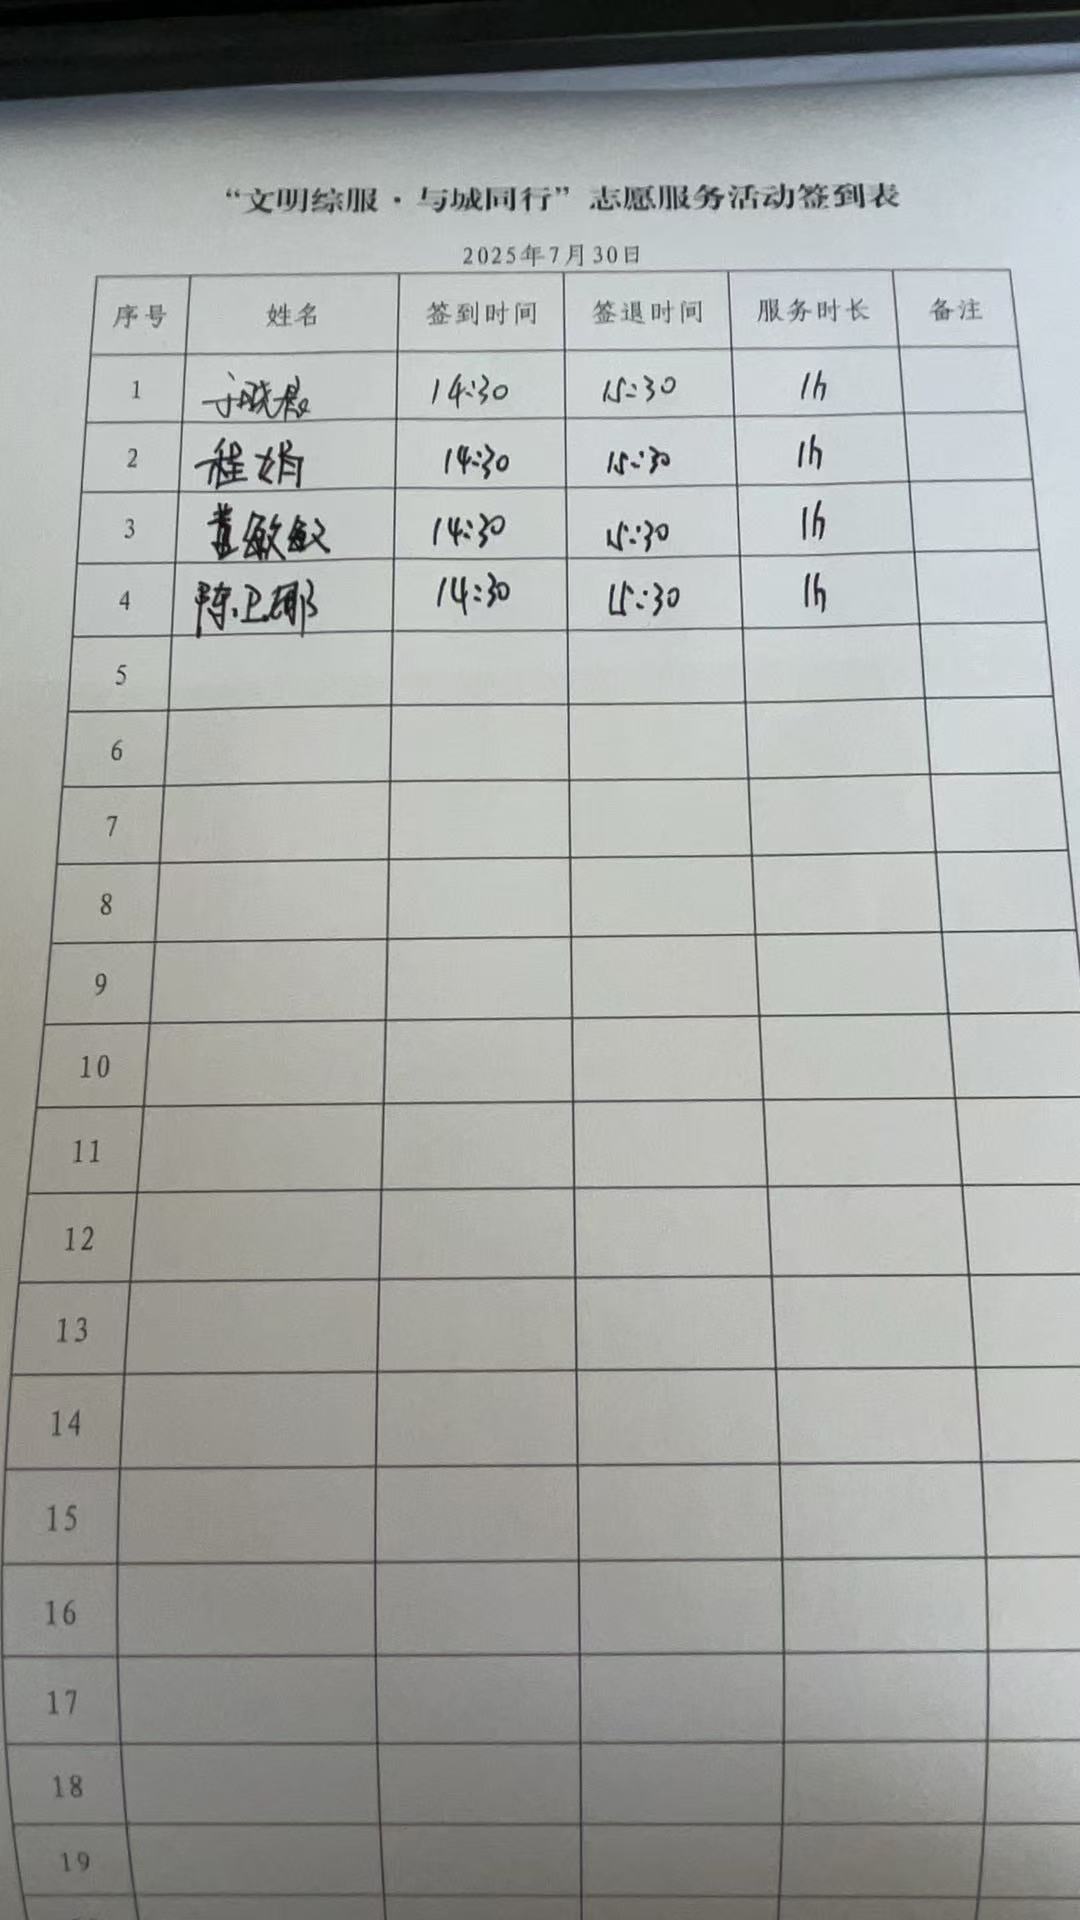 “文明综服·与城同行”志愿服务活动签到表
2025年7月30日
序号 姓名 签到时间 签退时间 服务时长 备注
1 于晓晨 14:30 15:30 1h
2 程娟 14:30 15:30 1h
3 董敏敏 14:30 15:30 1h
4 陈卫娜 14:30 15:30 1h
5
6
7
8
9
10
11
12
13
14
15
16
17
18
19